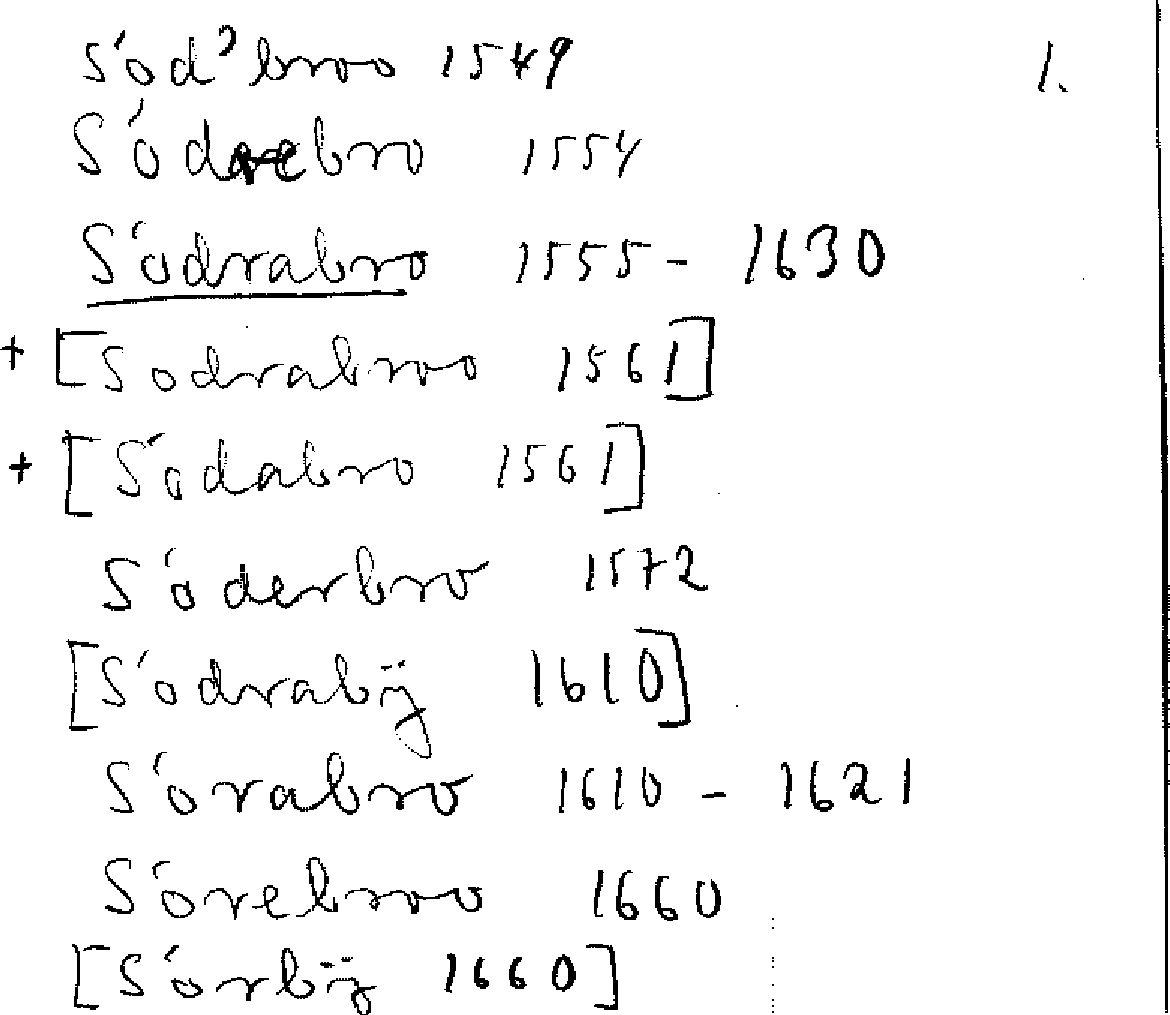 Sód'broo 1549 1.
Sódrebro 1554
Sódrabro 1555 - 1630
+ [Sodrabroo 1561]
+ [Södabro 1561]
Söderbro 1572
[Södrabÿ 1610]
Sörabro 1610 - 1621
Sörebroo 1660
[Sörbÿ 1660]